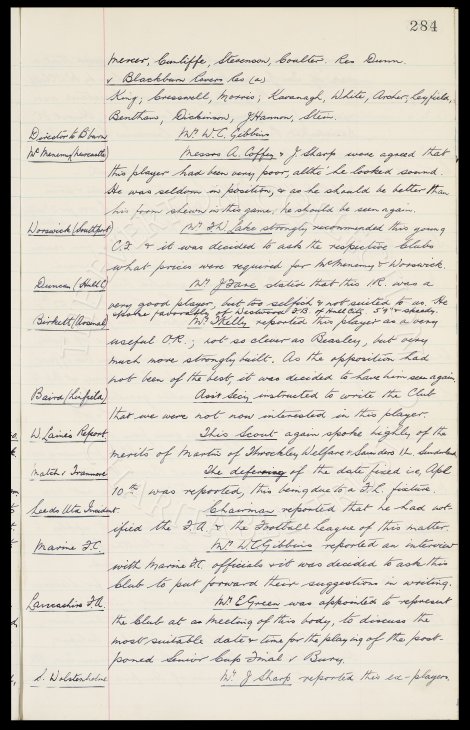 284
Mercer, Cunliffe, Stevenson, Coulter. Res Dunn.
v Blackburn Rovers Res (a)
King, Cresswell, Morris, Kavanagh, White, Archer, Leyfield,
Bentham, Dickinson, J Hannon, Stein.
Director to B'burn Mr W.C. Gibbins
McMenemy (Newcastle) Messrs A. Coffey & J Sharp were agreed that
this player had been very poor, altho' he looked sound.
He was seldom in position, & as he should be better than
his form shewn in this game, he should be seen again.
Worswick (Southport) strongly recommended this young
C.F. & it was decided to ask the respective Clubs
what prices were required for McMenemy & Worswick.
Duncan (Hull C) Mr J Fare stated that this I.R. was a
very good player, but too selfish & not suited to us. He
spoke favorably of Westwood F.B. of Hull City 5'9" & speedy.
Birkett (Arsenal) Mr T Kelly reported this player as a very
useful O.R.; not so clever as Beasley, but very
much more strongly built. As the opposition had
not been of the best, it was decided to have him seen again.
Baird (Linfield) Asst Secy. instructed to write the Club
that we were not now interested in this player.
W. Laine's Report This Scout again spoke highly of the
merits of Martin of Throckley Welfare & Saunders I.L. Sunderland
Match v Tranmere The deferring of the date fixed viz, Apl.
10th was reported, this being due to a F.L. fixture.
Leeds Utd Incident Chairman reported that he had not-
ified the F.A. & the Football League of this matter.
Marine F.C. Mr W.C. Gibbins reported an interview
with Marine F.C. officials & it was decided to ask this
Club to put forward their suggestions in writing.
Lancashire F.A. Mr E Green was appointed to represent
the Club at a meeting of this body, to discuss the
most suitable date & time for the playing of the post-
poned Senior Cup Final v Bury.
S. Wolstenholme Mr J Sharp reported this ex-players